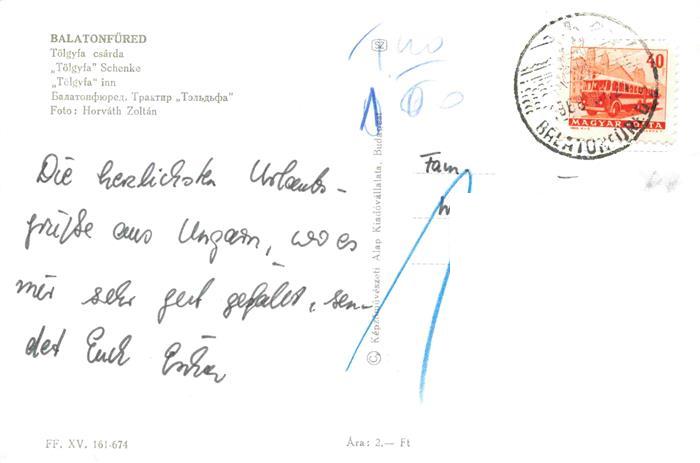 BALATONFÜRED
Tölgyfa csárda
„Tölgyfa" Schenke
„Tölgyfa" inn
Балатонфюред. Трактир „Тэльдьфа"
Foto: Horváth Zoltán
Die herzlichsten Urlaubs-
grüße aus Ungarn, wo es
mir sehr gut gefällt, sen-
det Euch
FF. XV. 161-674
Ára: 2.— Ft
© Képzőművészeti Alap Kiadóvállalata, Budapest
40
MAGYAR POSTA
BALATONFÜRED
Fam.